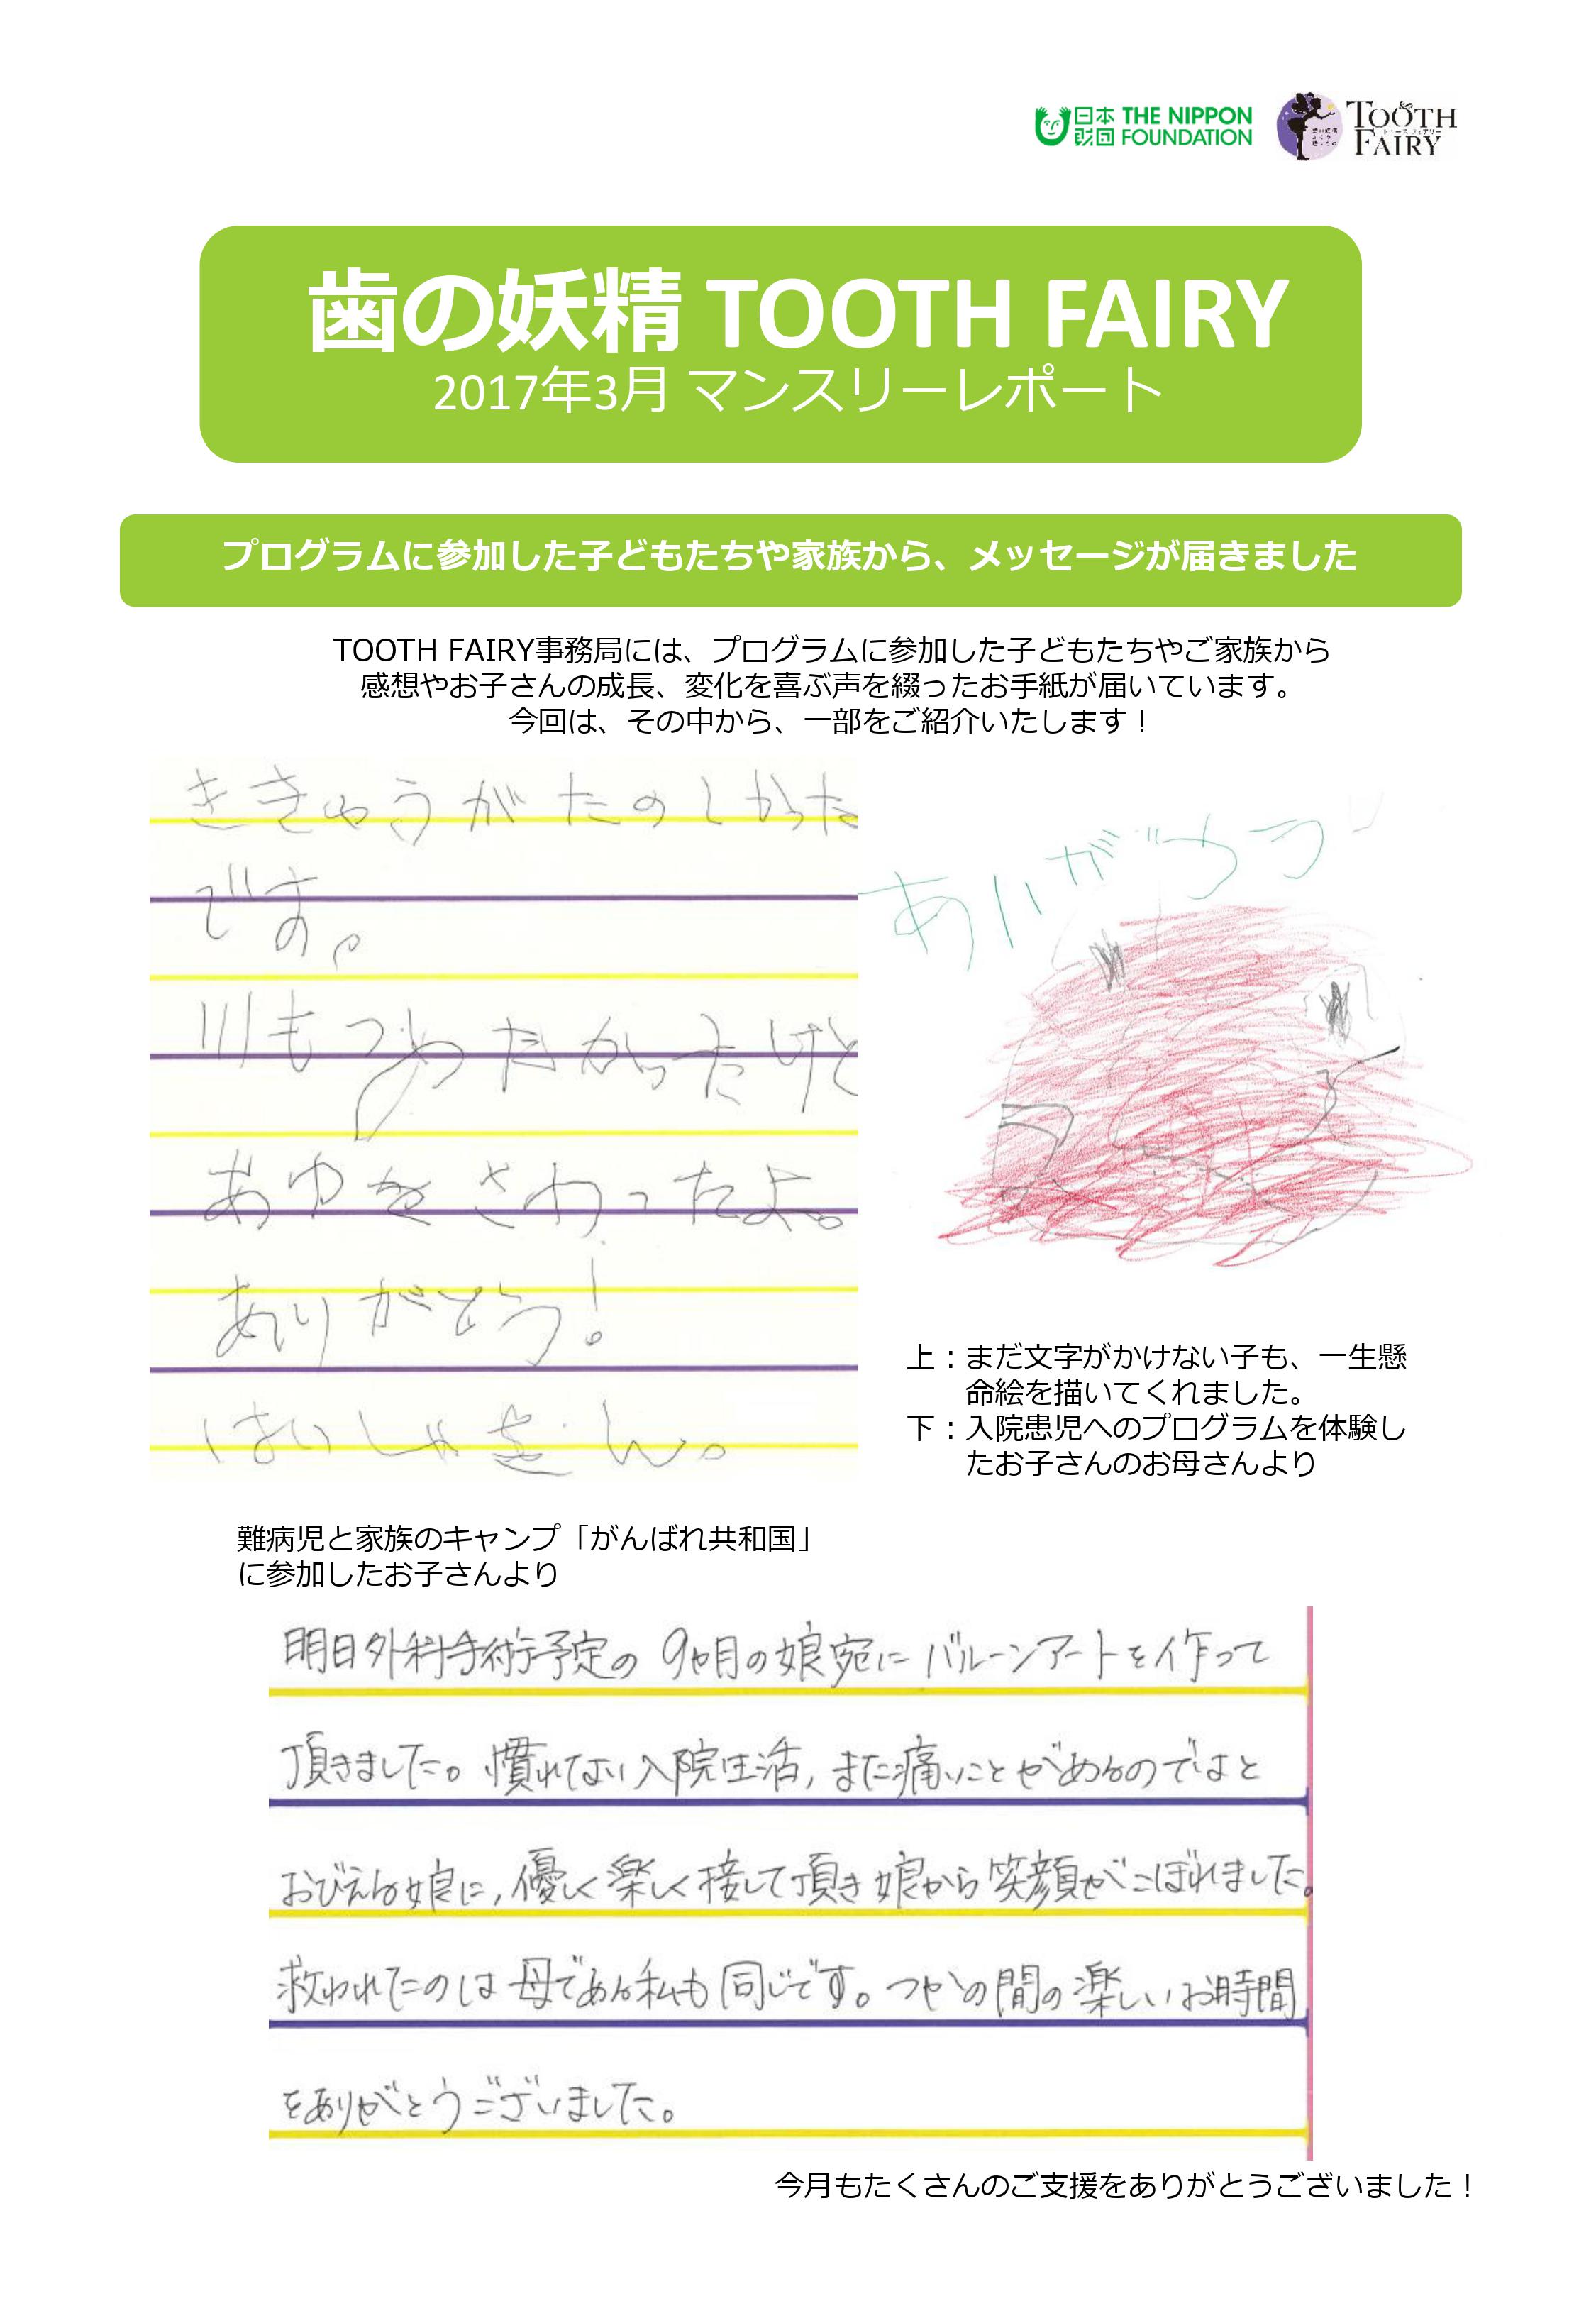 日本 THE NIPPON
財団 FOUNDATION
TOOTH
FAIRY
歯の妖精 TOOTH FAIRY
2017年3月 マンスリーレポート
プログラムに参加した子どもたちや家族から、メッセージが届きました
TOOTH FAIRY事務局には、プログラムに参加した子どもたちやご家族から
感想やお子さんの成長、変化を喜ぶ声を綴ったお手紙が届いています。
今回は、その中から、一部をご紹介いたします！
ききゅうがたのしかった
です。
川もつめたかったけど
あゆをさわったよ。
ありがとう！
はいしゃさん。
ありがとう
上：まだ文字がかけない子も、一生懸
命絵を描いてくれました。
下：入院患児へのプログラムを体験し
たお子さんのお母さんより
難病児と家族のキャンプ「がんばれ共和国」
に参加したお子さんより
明日外科手術予定の9ヶ月の娘宛にバルーンアートを作って
頂きました。慣れない入院生活，また痛いことがあるのではと
おびえる娘に，優しく楽しく接して頂き娘から笑顔がこぼれました。
救われたのは母である私も同じです。つかの間の楽しいお時間
をありがとうございました。
今月もたくさんのご支援をありがとうございました！